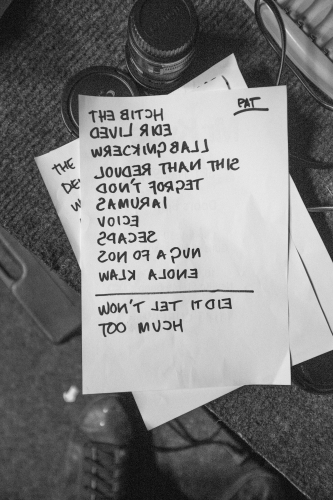 PAT
THE BITCH
DEVIL RIDE
WRECKING BALL
LOUDER THAN THIS
DON'T FORGET
SAMURAI
VOICE
SPACES
SON OF A GUN
WALK ALONE
WON'T LET IT DIE
TOO MUCH
THE
DE
W